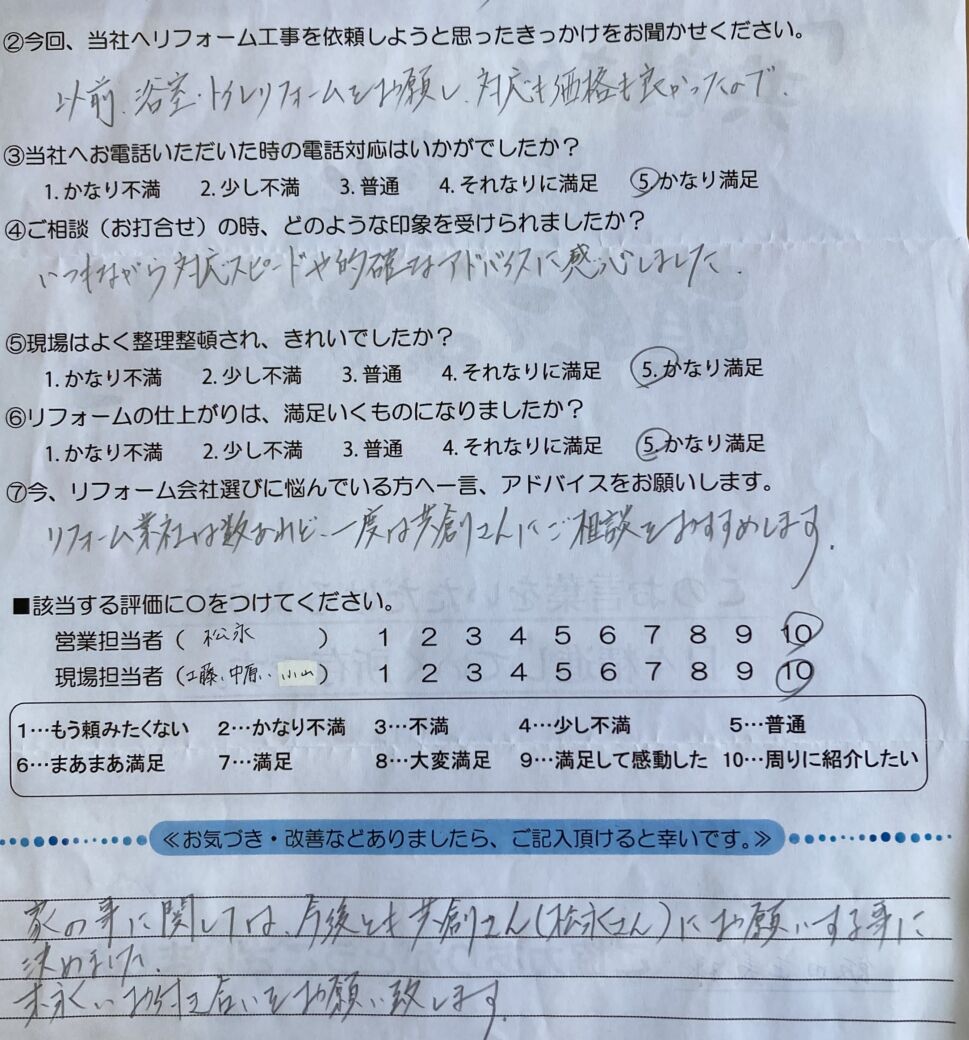 ②今回、当社へリフォーム工事を依頼しようと思ったきっかけをお聞かせください。
以前、浴室・トイレリフォームをお願し、対応も価格も良かったので、
③当社へお電話いただいた時の電話対応はいかがでしたか？
1.かなり不満 2.少し不満 3.普通 4.それなりに満足 5.かなり満足
④ご相談（お打合せ）の時、どのような印象を受けられましたか？
いつもながら対応スピードや的確なアドバイスに感心しました。
⑤現場はよく整理整頓され、きれいでしたか？
1.かなり不満 2.少し不満 3.普通 4.それなりに満足 5.かなり満足
⑥リフォームの仕上がりは、満足いくものになりましたか？
1.かなり不満 2.少し不満 3.普通 4.それなりに満足 5.かなり満足
⑦今、リフォーム会社選びに悩んでいる方へ一言、アドバイスをお願いします。
リフォーム業社は数あれど、一度は共創さんにご相談をおすすめします。
■該当する評価に〇をつけてください。
営業担当者（ 松永 ） 1 2 3 4 5 6 7 8 9 10
現場担当者（工藤、中原、小山） 1 2 3 4 5 6 7 8 9 10
1…もう頼みたくない 2…かなり不満 3…不満 4…少し不満 5…普通
6…まあまあ満足 7…満足 8…大変満足 9…満足して感動した 10…周りに紹介したい
≪お気づき・改善などありましたら、ご記入頂けると幸いです。≫
家の事に関しては、今後とも共創さん(松永さん)にお願いする事に
決めました。
末永いお付き合いをお願い致します。